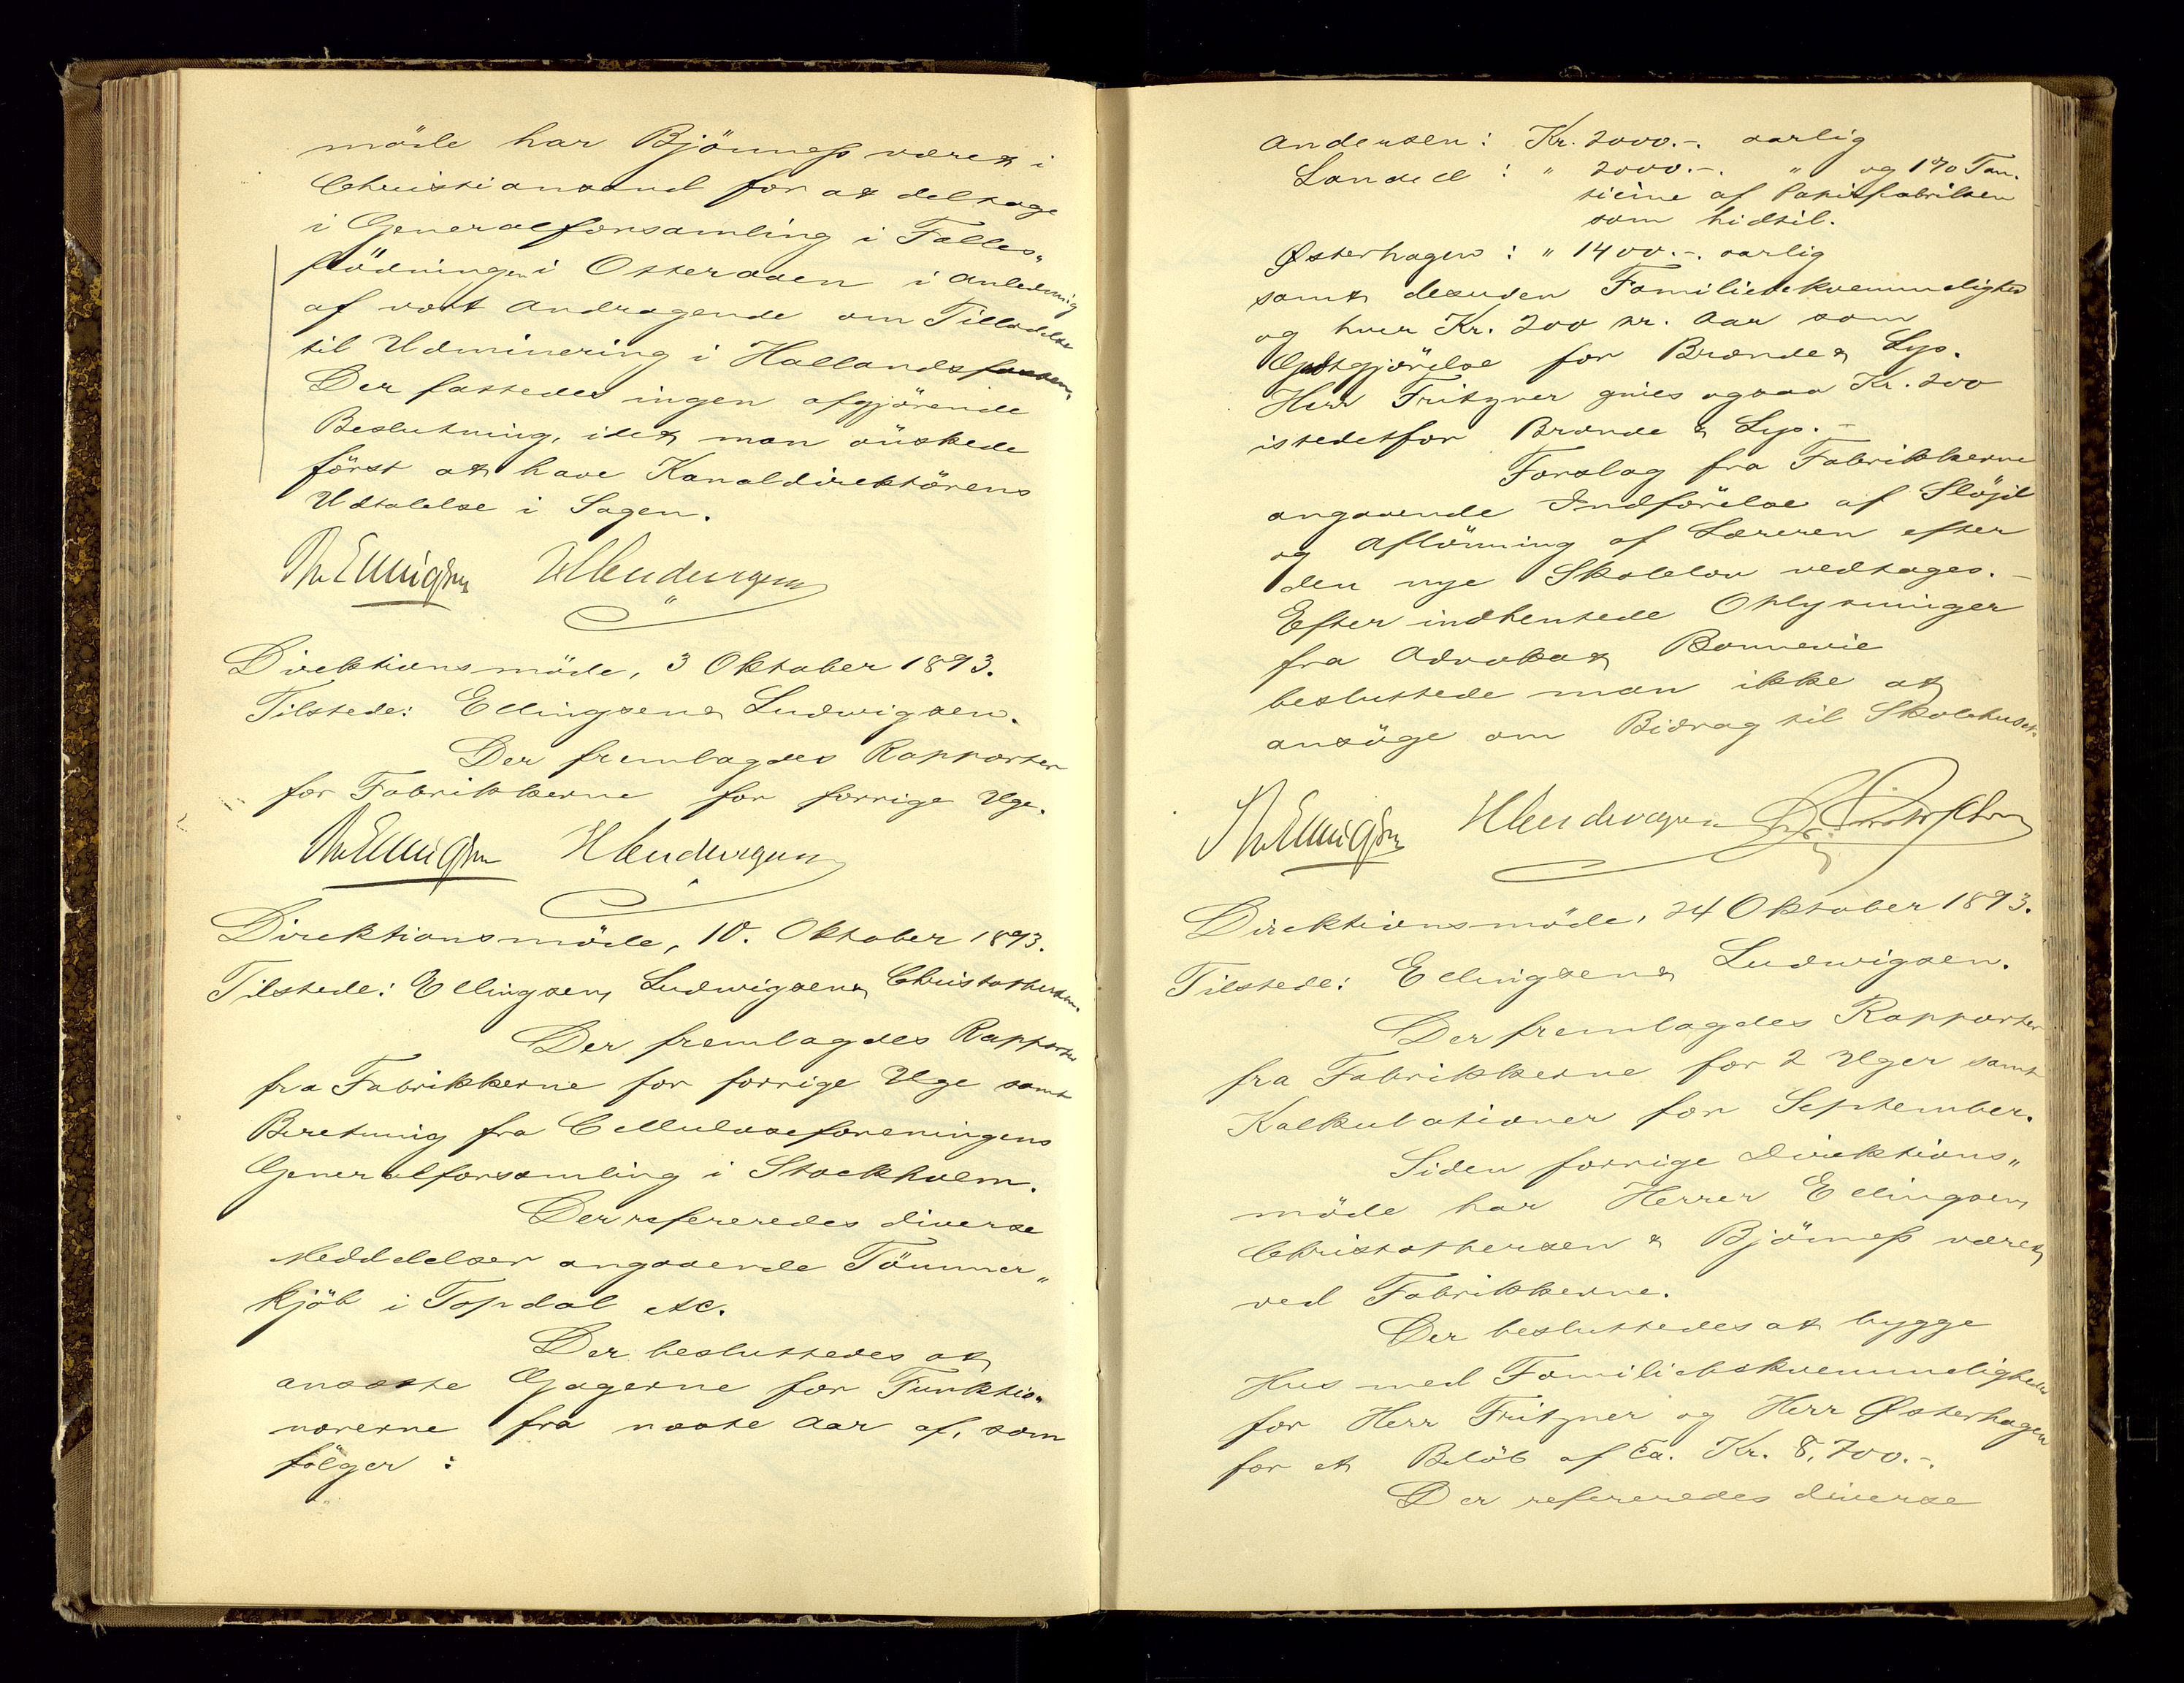 möde har Bjönness været i
Christiansand for at deltage
i Generalforsamling i Fælles„
flödningen i Otteraaen i Anledning
af vort Andragende om Tilladelse
til Udminering i Hallandsfossen,
Der fattedes ingen afgjörende
Beslutning, idet man önskede
först at have Kanaldirektörens
Udtalelse i Sagen.
Direktionsmöde, 3 Oktober 1893.
Tilstede: Ellingsen & Ludwigsen.
Der fremlagdes Rapporter
for Fabrikkerne for forrige Uge.
Direktionsmöde, 10. Oktober 1893.
Tilstede: Ellingsen, Ludwigsen & Christophersen.
Der fremlagdes Rapporter
fra Fabrikkerne for forrige Uge samt
Beretning fra Celluloseforeningens
Generalforsamling i Stockholm.
Der refereredes diverse
Meddelelser angaaende Tömmer„
kjöb i Topdal etc.
Der besluttedes at
ansætte Gagerne for Funktio„
nærerne fra næste Aar af, som
følger:
Andersen: Kr. 2000.-. aarlig
Landell: " 2000.-. " og 1% Tan.
tième af Papirfabriken
som hidtil.
Østerhagen: " 1400.-. aarlig
samt desuden Familiebekvemmelighed
og hver Kr. 200 pr. Aar som
Godtgjörelse for Brænde & Lys.
Herr Fritzner gives ogsaa Kr. 200
istedetfor Brænde & Lys. -
Forslag fra Fabrikkerne
angaaende Indförelse af Slöjd
og Aflönning af Læreren efter
den nye Skolelov vedtages. -
Efter indhentede Oplysninger
fra Advokat Bonnevie
besluttede man ikke at
ansöge om Bidrag til Skolehuset.
Direktionsmöde, 24 Oktober 1893.
Tilstede: Ellingsen & Ludwigsen.
Der fremlagdes Rapporter
fra Fabrikkerne for 2 Uger samt
Kalkulationer for September.
Siden forrige Direktions„
möde har Herrer Ellingsen,
Christophersen & Bjönness været
ved Fabrikkerne.
Der besluttedes at bygge
Hus med Familiebekvemmeligheder
for Herr Fritzner og Herr Østerhagen
for et Belöb af Ca. Kr. 8,700.-.
Der refereredes diverse